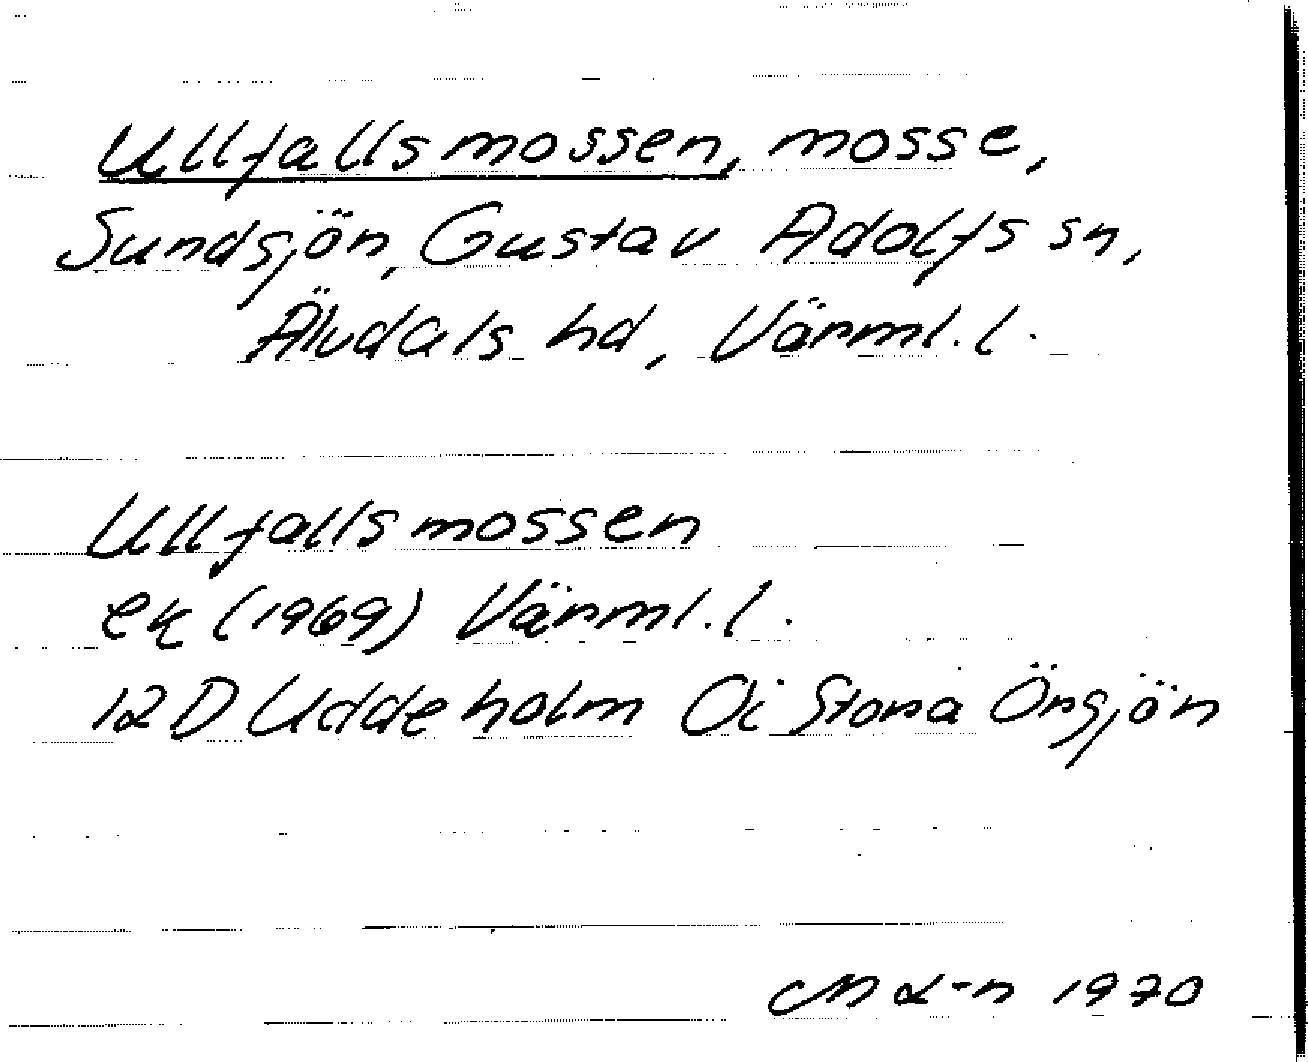 Ullfallsmossen, mosse,
Sundsjön, Gustav Adolfs sn,
Älvdals hd, Värml. l.
Ullfallsmossen
ek (1969) Värml. l.
12D Uddeholm Oi Stora Örsjön
1970